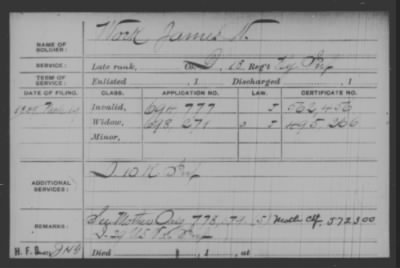 NAME OF SOLDIER: Work James W.
SERVICE: Late rank, Co. D. 13. Reg't Ky. Inf
TERM OF SERVICE: Enlisted , 1 Discharged , 1
DATE OF FILING. CLASS. APPLICATION NO. LAW. CERTIFICATE NO.
Invalid, 694.777 J 562.456
Widow, 698.271 J 495.266
Minor,
ADDITIONAL SERVICES: D 10 K Inf
REMARKS: See Mother Orig 778.179 Moth Ctf. 572300
Died , 1 , at